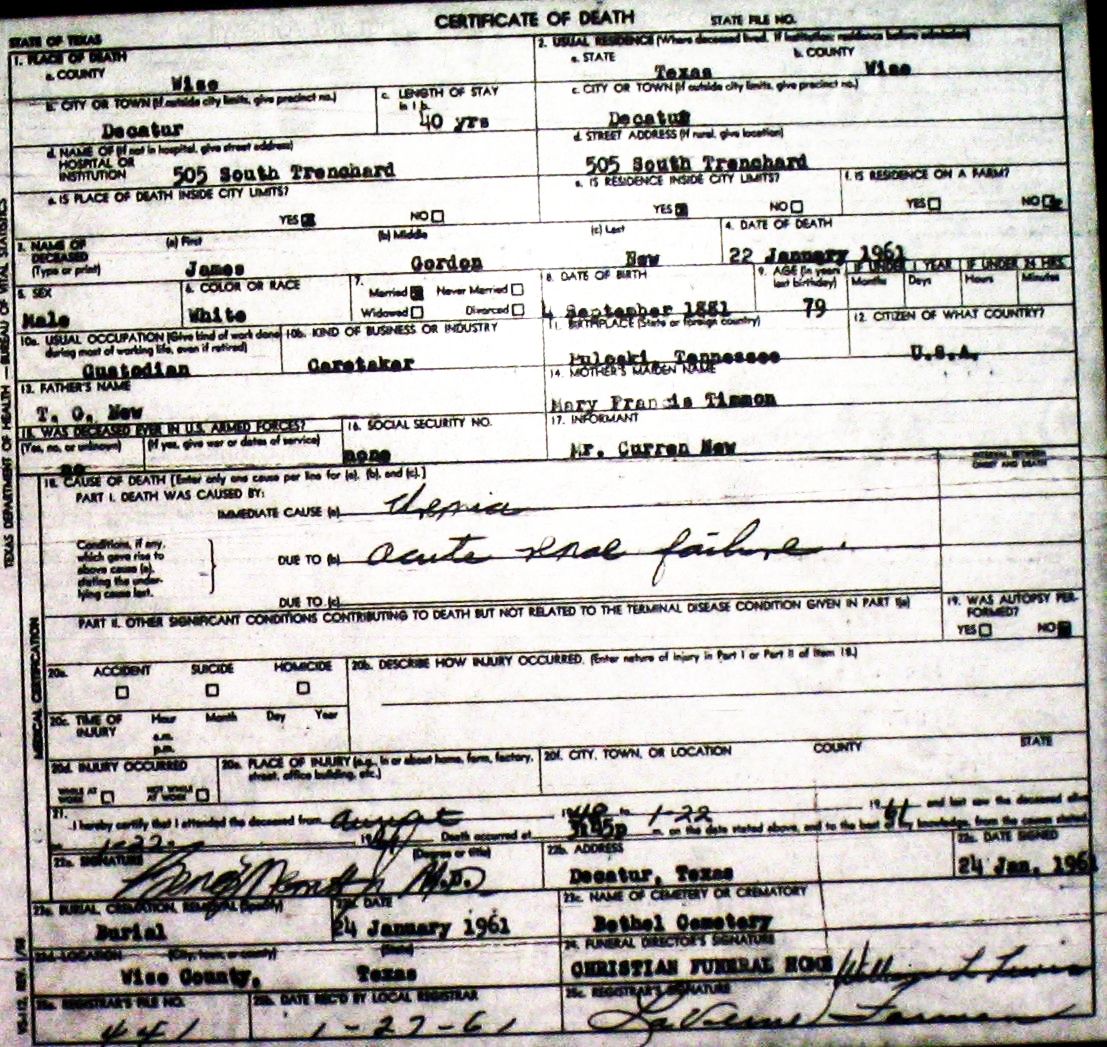 CERTIFICATE OF DEATH STATE FILE NO.
STATE OF TEXAS
1. PLACE OF DEATH
a. COUNTY
Wise
2. USUAL RESIDENCE (Where deceased lived. If institution: residence before admission)
a. STATE b. COUNTY
Texas Wise
b. CITY OR TOWN (If outside city limits, give precinct no.)
Decatur
c. LENGTH OF STAY
in 1 b.
40 yrs
c. CITY OR TOWN (If outside city limits, give precinct no.)
Decatur
d. NAME OF (If not in hospital, give street address)
HOSPITAL OR
INSTITUTION 505 South Trenchard
d. STREET ADDRESS (If rural, give location)
505 South Trenchard
e. IS PLACE OF DEATH INSIDE CITY LIMITS?
YES NO
e. IS RESIDENCE INSIDE CITY LIMITS?
YES NO
f. IS RESIDENCE ON A FARM?
YES NO
3. NAME OF
DECEASED
(Type or print)
(a) First (b) Middle (c) Last
James Gordon New
4. DATE OF DEATH
22 January 1961
5. SEX
Male
6. COLOR OR RACE
White
7.
Married Never Married
Widowed Divorced
8. DATE OF BIRTH
4 September 1881
9. AGE (In years
last birthday)
79
IF UNDER 1 YEAR IF UNDER 24 HRS.
Months Days Hours Minutes
10a. USUAL OCCUPATION (Give kind of work done
during most of working life, even if retired)
Custodian
10b. KIND OF BUSINESS OR INDUSTRY
Caretaker
11. BIRTHPLACE (State or foreign country)
Pulaski, Tennessee
12. CITIZEN OF WHAT COUNTRY?
U.S.A.
13. FATHER'S NAME
T. G. New
14. MOTHER'S MAIDEN NAME
Mary Francis Timmon
15. WAS DECEASED EVER IN U.S. ARMED FORCES?
(Yes, no, or unknown) (If yes, give war or dates of service)
no
16. SOCIAL SECURITY NO.
none
17. INFORMANT
Mr. Curren New
18. CAUSE OF DEATH [Enter only one cause per line for (a), (b), and (c).]
PART I. DEATH WAS CAUSED BY:
IMMEDIATE CAUSE (a)
INTERVAL BETWEEN
ONSET AND DEATH
Conditions, if any,
which gave rise to
above cause (a),
stating the under-
lying cause last.
DUE TO (b) acute renal failure.
DUE TO (c)
PART II. OTHER SIGNIFICANT CONDITIONS CONTRIBUTING TO DEATH BUT NOT RELATED TO THE TERMINAL DISEASE CONDITION GIVEN IN PART I(a)
19. WAS AUTOPSY PER-
FORMED?
YES NO
20a. ACCIDENT SUICIDE HOMICIDE
20b. DESCRIBE HOW INJURY OCCURRED. (Enter nature of injury in Part I or Part II of item 18.)
20c. TIME OF
INJURY
Hour Month Day Year
a.m.
p.m.
20d. INJURY OCCURRED
WHILE AT
WORK
NOT WHILE
AT WORK
20e. PLACE OF INJURY (e.g., in or about home, farm, factory,
street, office building, etc.)
20f. CITY, TOWN, OR LOCATION COUNTY STATE
21.
I hereby certify that I attended the deceased from August 1948 to 1-22 1961 and last saw the deceased alive
on 1-22 1961 Death occurred at 3:45p m. on the date stated above, and to the best of my knowledge, from the causes stated.
22a. SIGNATURE (Degree or title)
M.D.
22b. ADDRESS
Decatur, Texas
22c. DATE SIGNED
24 Jan. 1961
23a. BURIAL, CREMATION, REMOVAL (Specify)
Burial
23b. DATE
24 January 1961
23c. NAME OF CEMETERY OR CREMATORY
Bethel Cemetery
23d. LOCATION (City, town, or county) (State)
Wise County, Texas
24. FUNERAL DIRECTOR'S SIGNATURE
CHRISTIAN FUNERAL HOME
25a. REGISTRAR'S FILE NO.
441
25b. DATE REC'D BY LOCAL REGISTRAR
1-27-61
25c. REGISTRAR'S SIGNATURE
LaVerne Forman
TEXAS DEPARTMENT OF HEALTH — BUREAU OF VITAL STATISTICS
MEDICAL CERTIFICATION